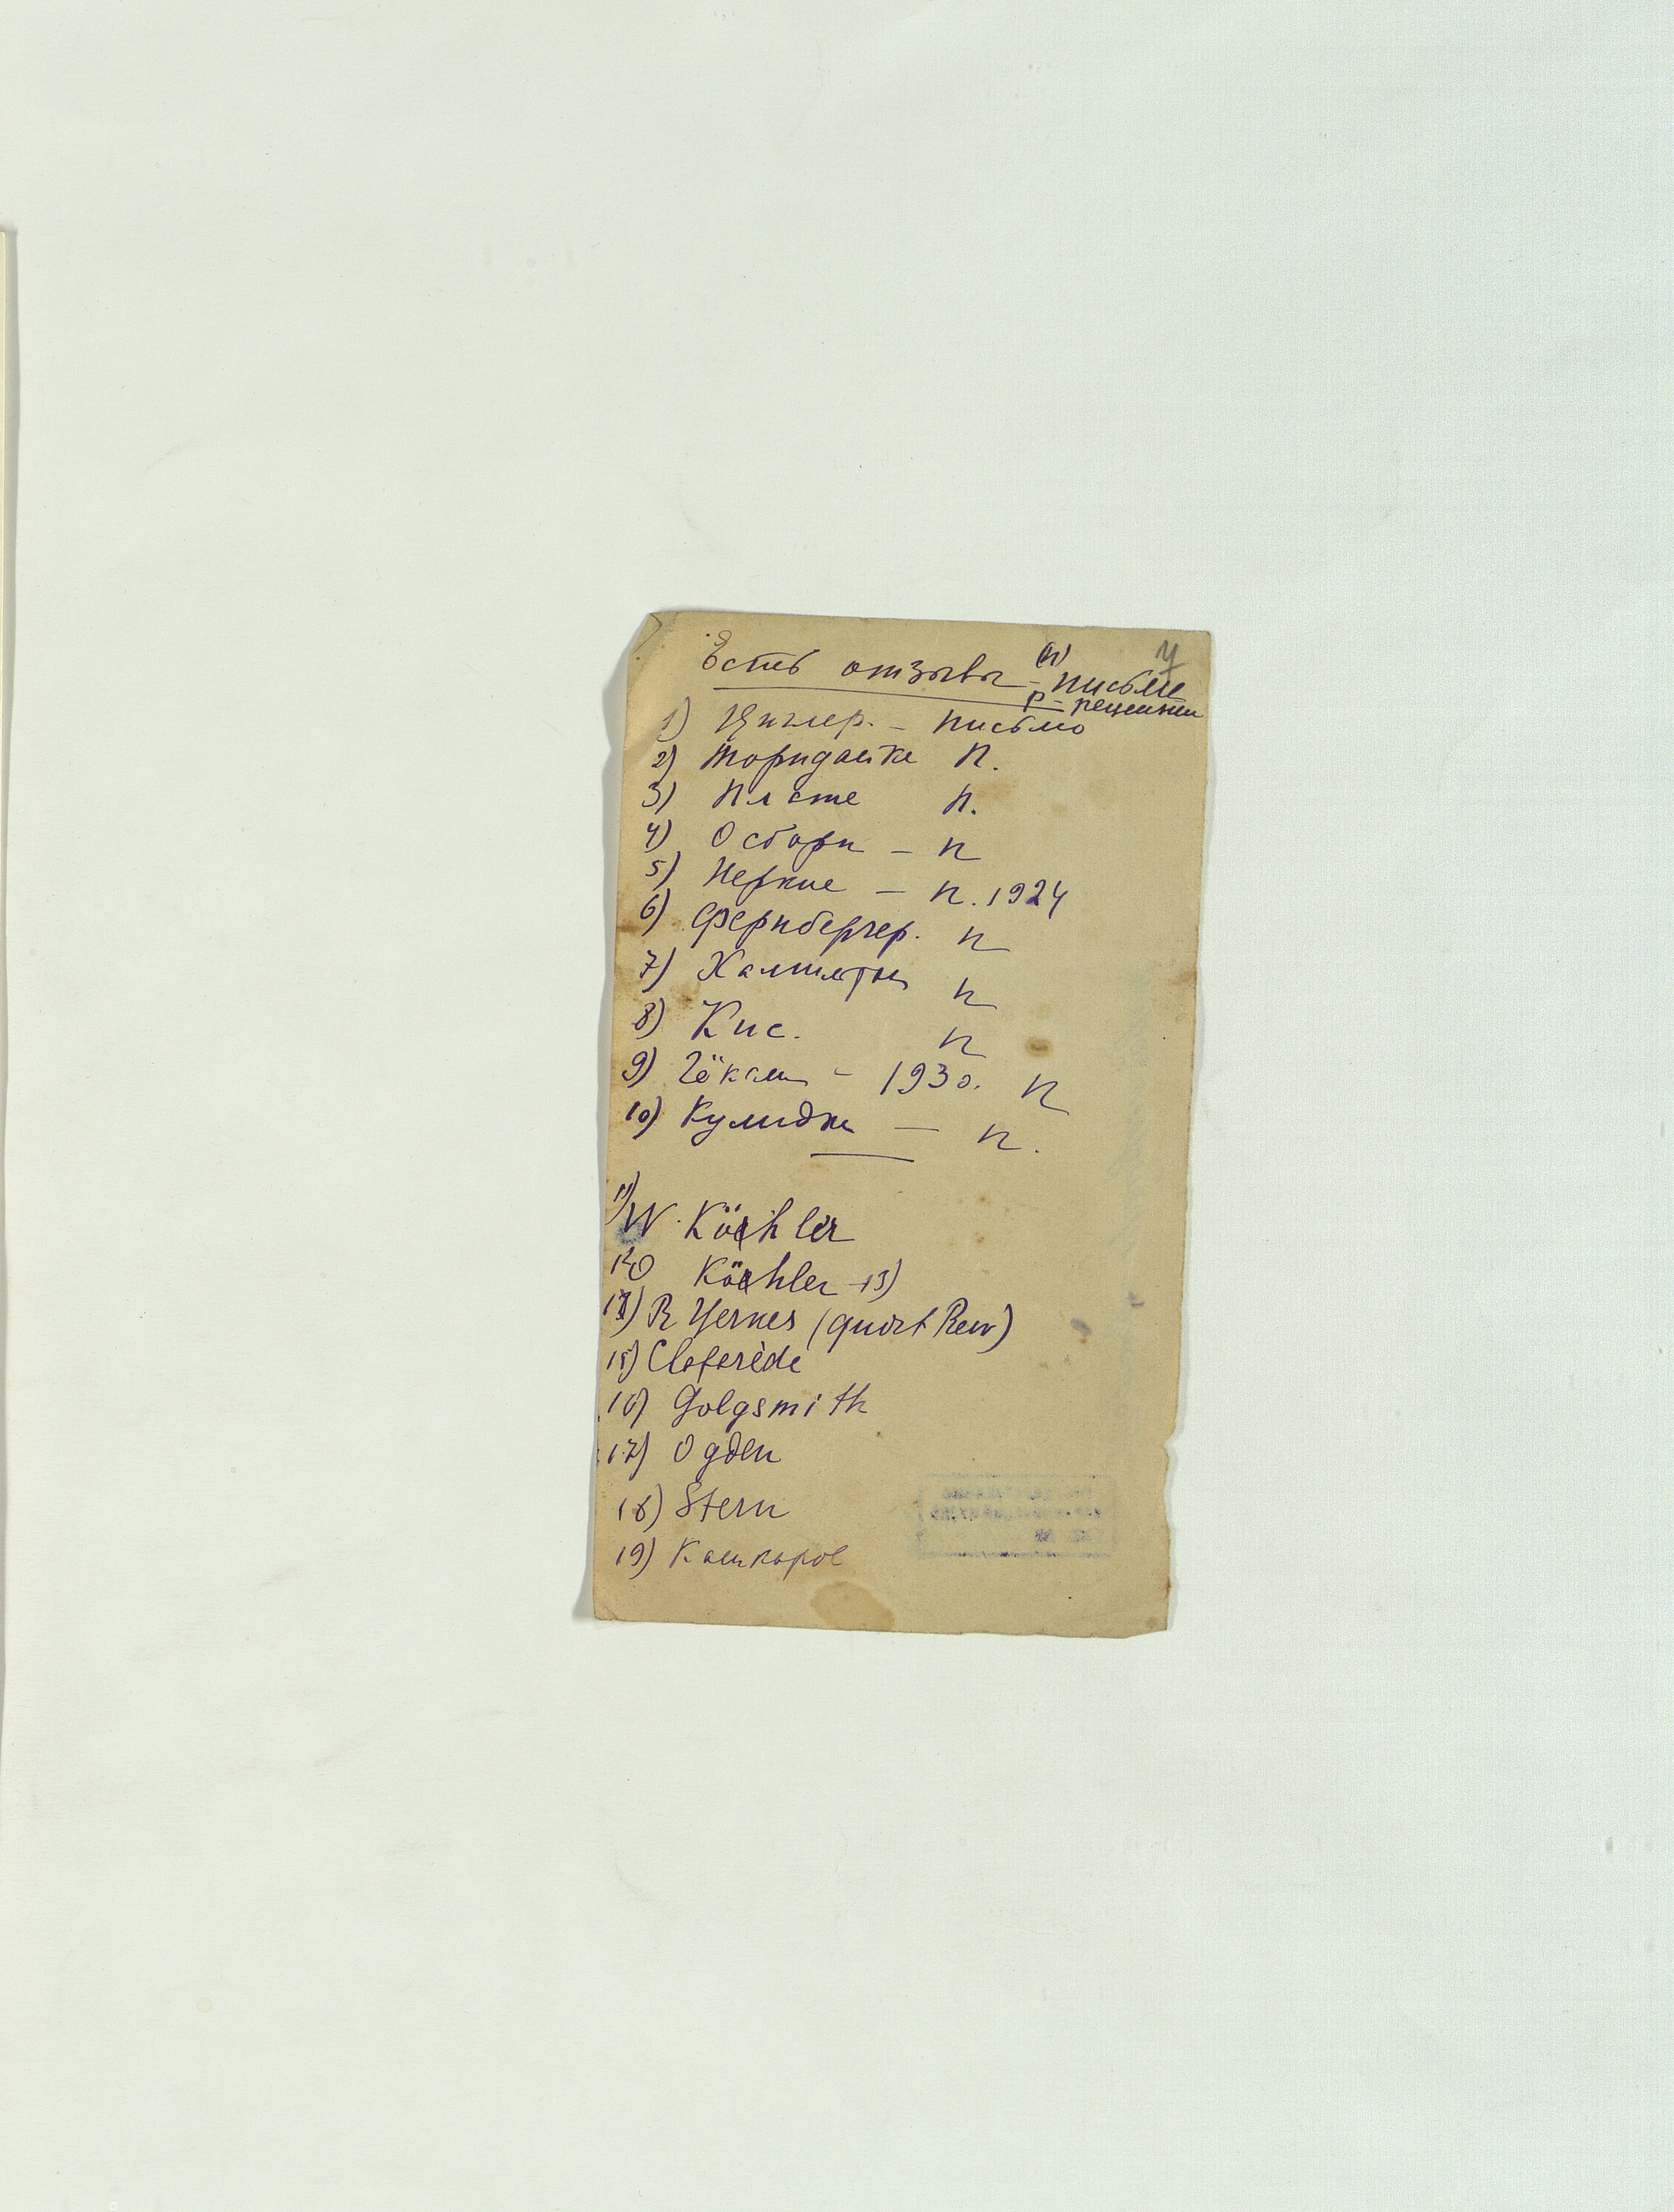 Есть отзывы – (п) письме
р – рецензии
1) Циглер. – письмо
2) Торндайке п.
3) Пл сте п.
4) Осборн – п
5) Иеркис – п. 1924
6) Фернбергер. п
7) Хамильтон п
8) Кис. п
9) – 1930. п
10) Кулидж – п.
11) W. Köehler
12) O Köehler – 13)
14) R Yerkes (quart Rew)
15) Claparède
16) Golgsmith
17) Ogden
18) Stern
19) Кашкаров